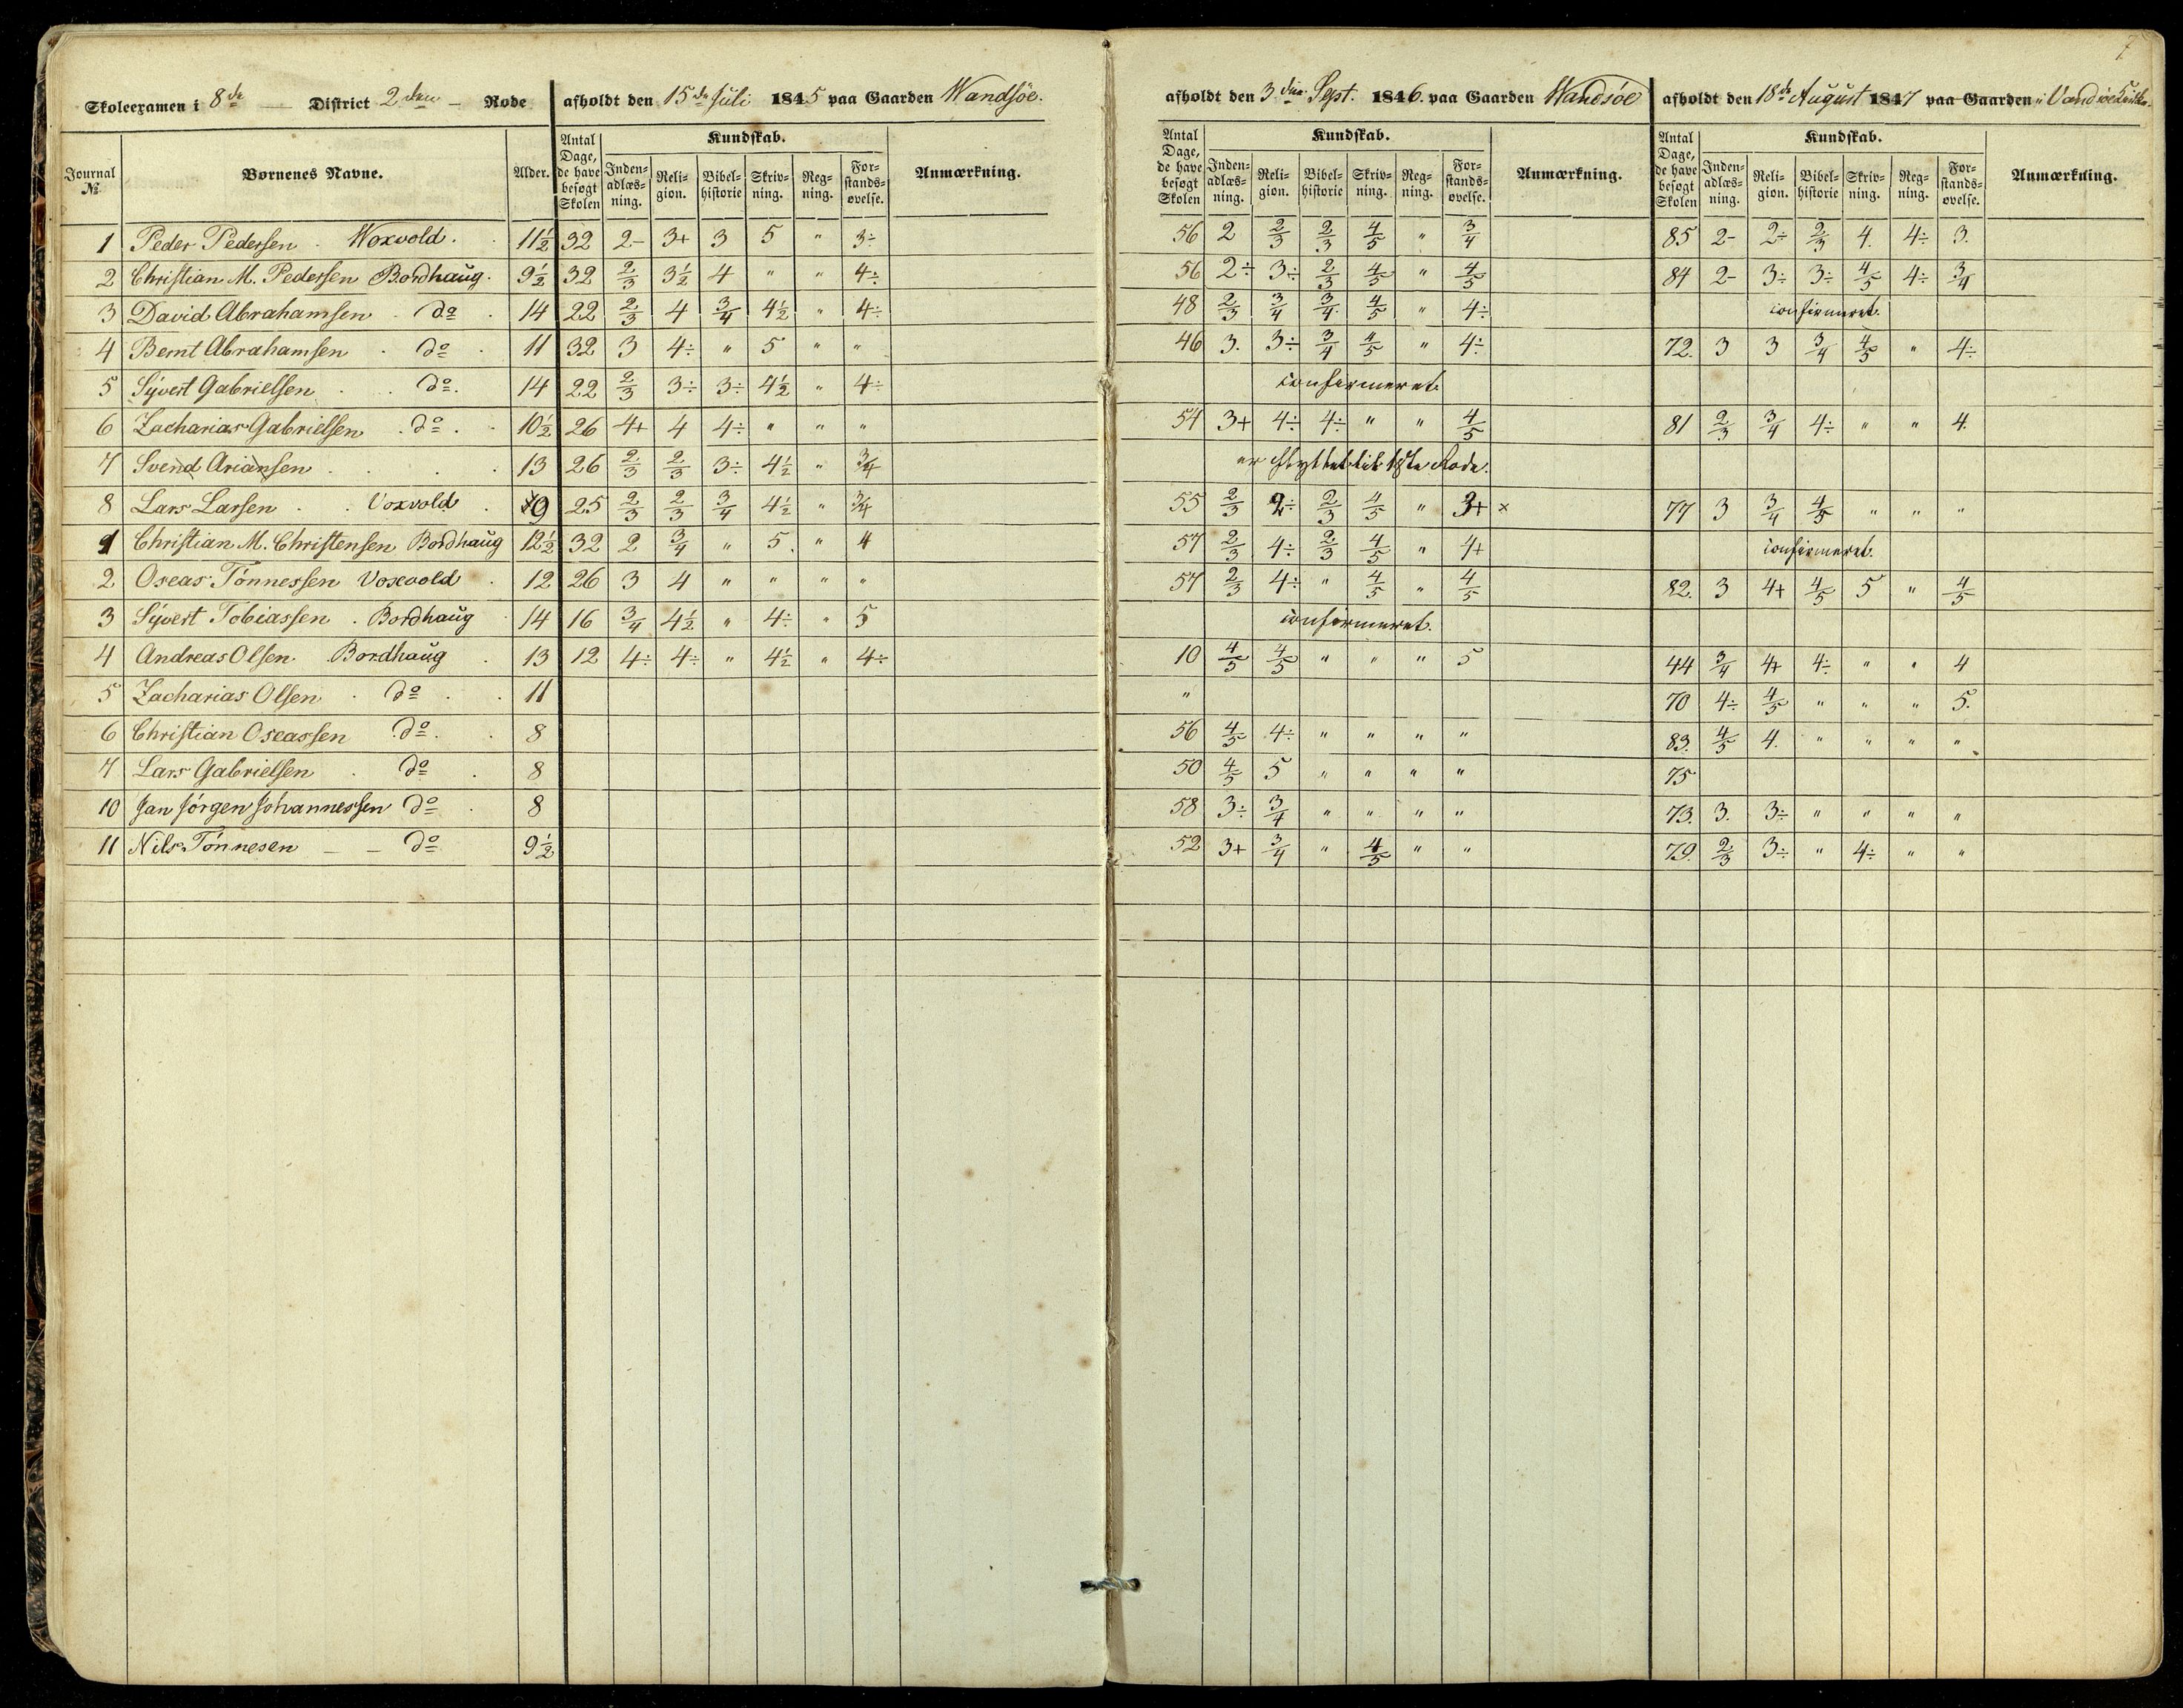 7
Skoleexamen i 8de District 2den Rode afholdt den 15de Juli 1845 paa Gaarden Wandsöe. afholdt den 3die Sept. 1846. paa Gaarden Wandsöe afholdt den 18de August 1847 paa Gaarden
Journal № Børnenes Navne. Alder. Antal Dage, de have besøgt Skolen Kundskab. Inden-adlæs-ning. Reli-gion. Bibel-historie Skriv-ning. Reg-ning. For-stands-øvelse. Anmærkning. Antal Dage, de have besøgt Skolen Kundskab. Inden-adlæs-ning. Reli-gion. Bibel-historie Skriv-ning. Reg-ning. For-stands-øvelse. Anmærkning. Antal Dage, de have besøgt Skolen Kundskab. Inden-adlæs-ning. Reli-gion. Bibel-historie Skriv-ning. Reg-ning. For-stands-øvelse. Anmærkning.
1 Peder Pedersen Woxvold. 11½ 32 2- 3+ 3 5 " 3÷ 56 2 2/3 2/3 4/5 " 3/4 85 2- 2÷ 2/3 4. 4÷ 3.
2 Christian M. Pedersen Bordhaug. 9½ 32 2/3 3½ 4 " " 4÷ 56 2÷ 3÷ 2/3 4/5 " 4/5 84 2- 3÷ 3÷ 4/5 4÷ 3/4
3 David Abrahamsen do 14 22 2/3 4 3/4 4½ " 4÷ 48 2/3 3/4 3/4 4/5 " 4÷ confirmeret.
4 Bernt Abrahamsen do 11 32 3 4÷ " 5 " " 46 3. 3÷ 3/4 4/5 " 4÷ 72. 3 3 3/4 4/5 " 4÷
5 Sÿvert Gabrielsen do. 14 22 2/3 3÷ 3÷ 4½ " 4÷ confirmeret.
6 Zacharias Gabrielsen do 10½ 26 4+ 4 4÷ " " " 54 3+ 4÷ 4÷ " " 4/5 81 2/3 3/4 4÷ " " 4.
7 Svend Ariansen 13 26 2/3 2/3 3÷ 4½ " 3/4 er flyttet til 1ste Rode.
8 Lars Larsen Voxvold 9 25 2/3 2/3 3/4 4½ " 3/4 55 2/3 2÷ 2/3 4/5 " 3+ × 77 3 3/4 4/5 " " "
1 Christian M. Christensen Bordhaug 12½ 32 2 3/4 " 5. " 4 57 2/3 4÷ 2/3 4/5 " 4+ confirmeret.
2 Oseas Tönnessen Voxvold 12 26 3 4 " " " " 57 2/3 4÷ " 4/5 " 4/5 82. 3 4+ 4/5 5 " 4/5
3 Sÿvert Tobiassen Bordhaug 14 16 3/4 4½ " 4÷ " 5 confirmeret.
4 Andreas Olsen Bordhaug 13 12 4÷ 4÷ " 4½ " 4÷ 10 4/5 4/5 " " " 5 44 3/4 4+ 4÷ " " 4
5 Zacharias Olsen do 11 " 70 4÷ 4/5 " " " 5.
6 Christian Oseassen do 8 56 4/5 4÷ " " " " 83. 4/5 4. " " " "
7 Lars Gabrielsen do 8 50 4/5 5 " " " " 75
10 Jan Jörgen Johannessen do 8 58 3÷ 3/4 " " " " 73. 3. 3÷ " " " "
11 Nils Tönnesen do 9½ 52 3+ 3/4 " 4/5 " " 79. 2/3 3÷ " 4÷ " "